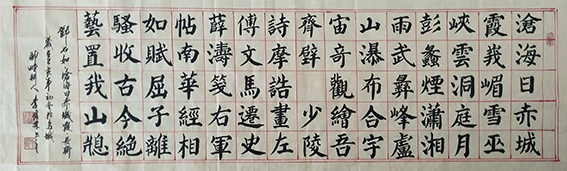 滄海日赤城
霞峩嵋雪巫
峽雲洞庭月
彭蠡煙瀟湘
雨武彝峰廬
山瀑布合宇
宙奇觀繪吾
齋壁 少陵
詩摩詰畫左
傳文馬遷史
薛濤箋右軍
帖南華經相
如賦屈子離
騷收古今絕
藝置我山牕
鄧石如滄海日赤城霞長聯